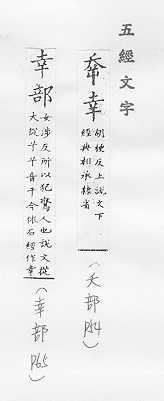 五經文字
𡴘幸 胡耿反上說文下
經典相承隸省
（夭部 P44）
幸部
女涉反所以犯驚人也說文從
大從𢆉𢆉音干今依石經作幸
（幸部 P65）